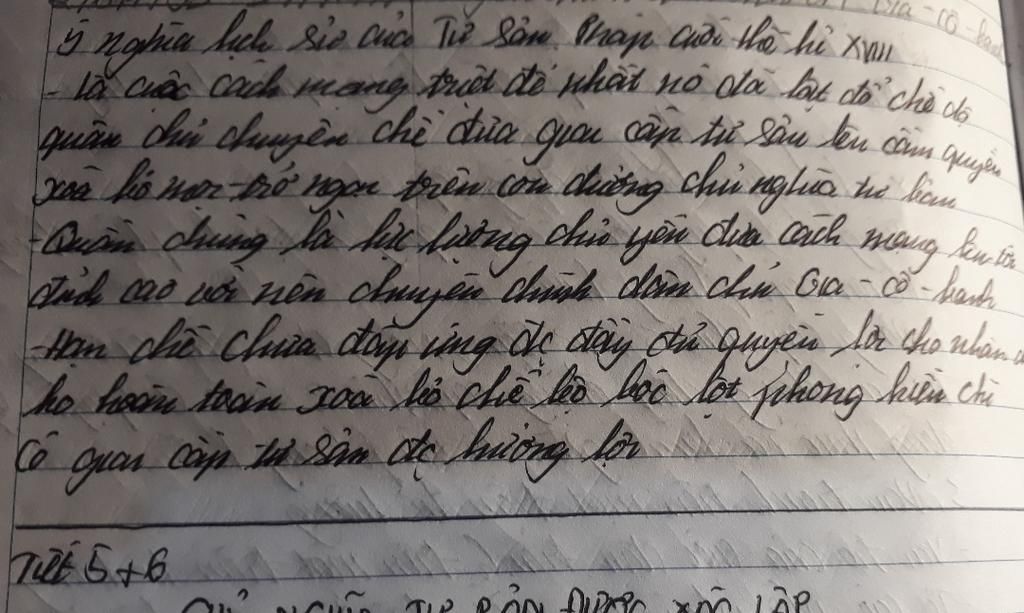 Gia - cô - banh
ý nghĩa lịch sử của Tư sản Pháp cuối thế kỉ XVIII
- là cuộc cách mạng triệt để nhất nó đã lật đổ chế độ
quân chủ chuyên chế đưa giai cấp tư sản lên cầm quyền
xoá bỏ mọi trở ngại trên con đường chủ nghĩa tư bản
- Quần chúng là lực lượng chủ yếu đưa cách mạng lên tới
đỉnh cao với nền chuyên chính dân chủ Gia - cô - banh
- Hạn chế chưa đáp ứng đc đầy đủ quyền lợi cho nhân
ko hoàn toàn xoá bỏ chế bóc lột phong kiến chỉ
có giai cấp tư sản đc hưởng lợi
Tiết 5 + 6
CHỦ NGHĨA TƯ BẢN ĐƯỢC XÁC LẬP